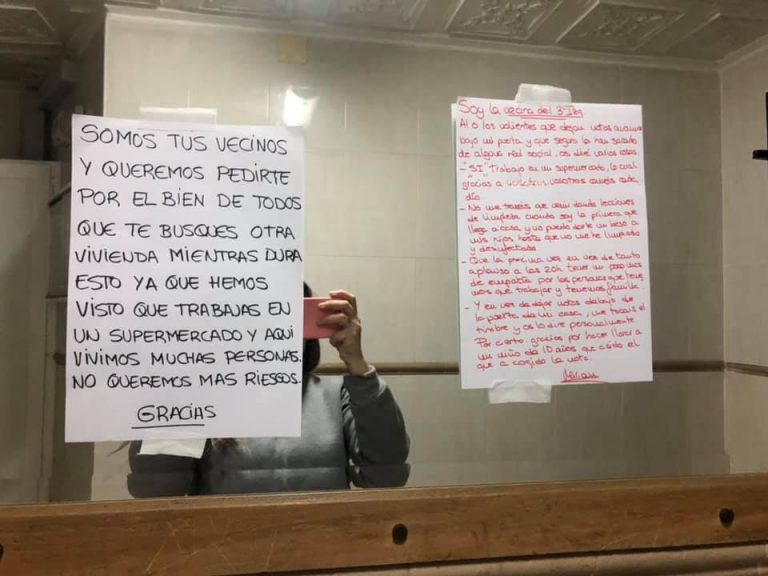 SOMOS TUS VECINOS
Y QUEREMOS PEDIRTE
POR EL BIEN DE TODOS
QUE TE BUSQUES OTRA
VIVIENDA MIENTRAS DURA
ESTO YA QUE HEMOS
VISTO QUE TRABAJAS EN
UN SUPERMERCADO Y AQUI
VIVIMOS MUCHAS PERSONAS.
NO QUEREMOS MAS RIESGOS.
GRACIAS
Soy la vecina del 3º
Al o los valientes que dejan notas
bajo mi puerta y que seguro la han sacado
de alguna red social, os diré varias cosas.
- "SI" Trabajo en un supermercado, lo cual
gracias a vosotros coméis cada
día.
- No me tenéis que venir dando lecciones
de limpieza cuando soy la primera que
llega a casa y no puedo darle un beso a
mis hijos hasta que no me he limpiado
y desinfectado
- Que la próxima vez en vez de tanto
aplauso a las 20h tener un poco mas
de empatía por las personas que tene
mos que trabajar y tenemos familia.
- Y en vez de dejar notas debajo de
la puerta de mi casa, me tocais el
timbre y os lo dire personalmente.
Por cierto, gracias por hacer llorar a
un niño de 10 años que a sido el
que a cojido la nota.
Miriam